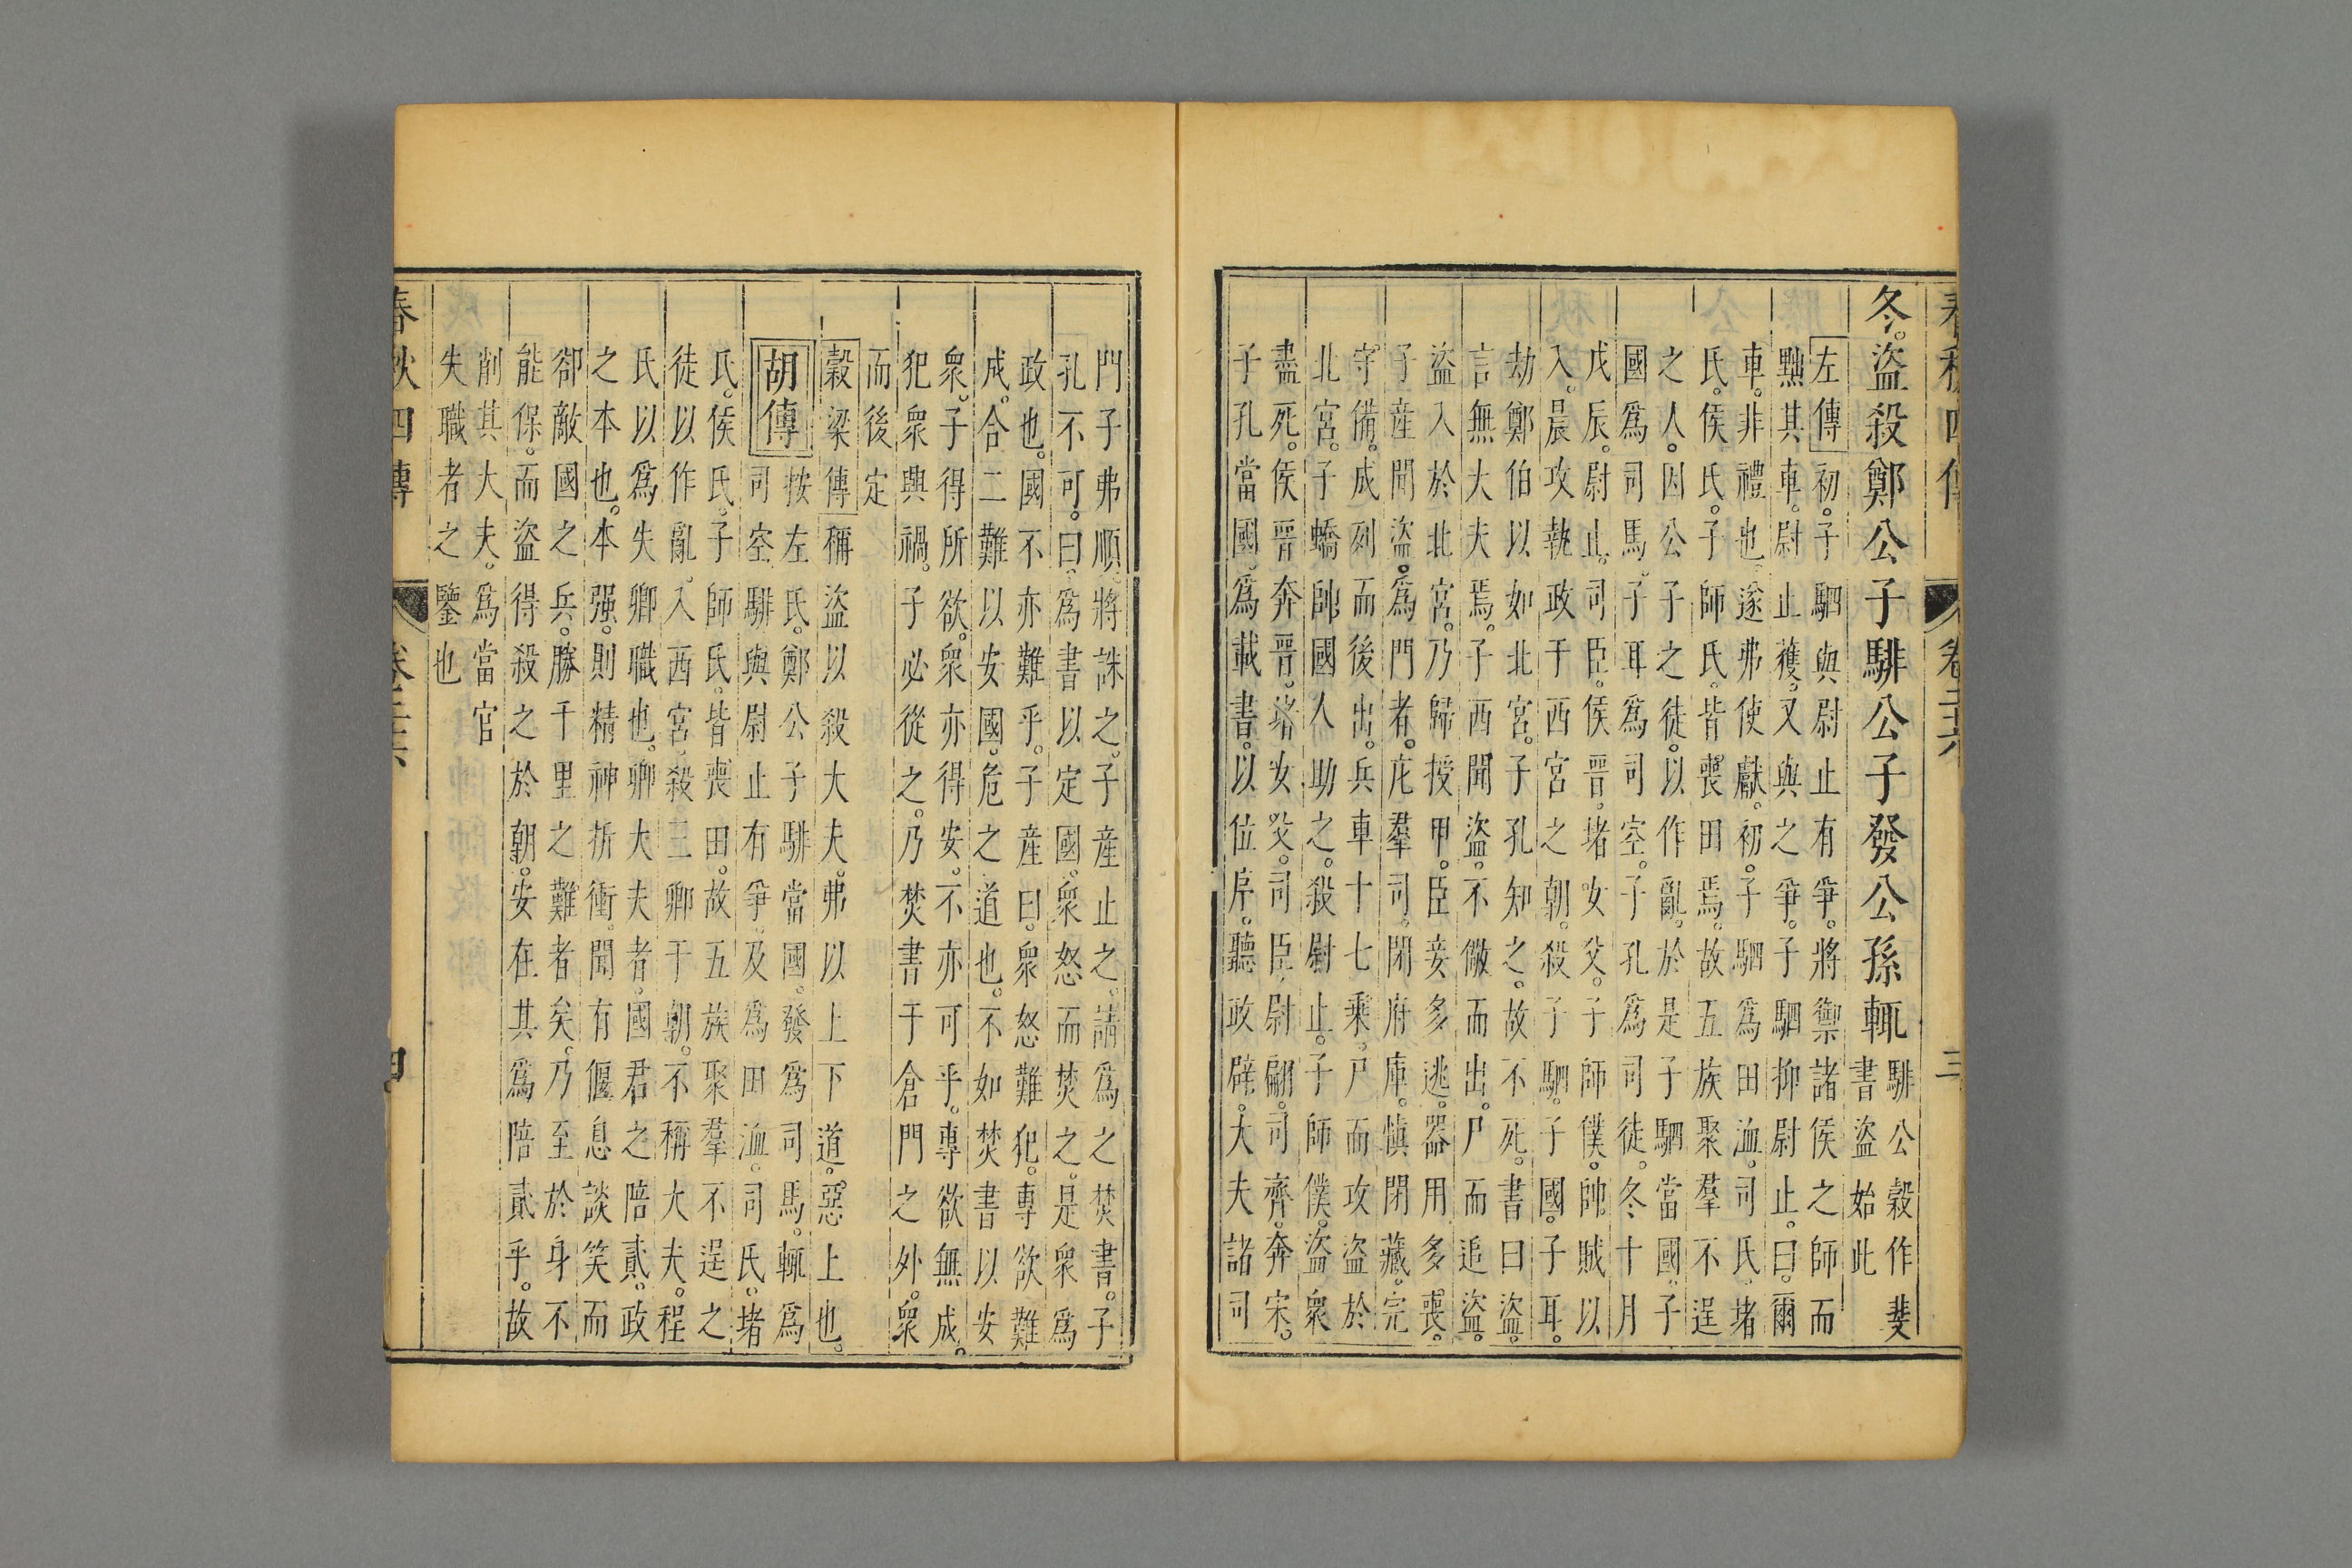 春秋四傳
三
冬。盜殺鄭公子騑公子發公孫輒
騑公穀作斐
書盜始此
左傳初。子駟與尉止有爭。將禦諸侯之師而
黜其車。尉止獲。又與之爭。子駟抑尉止。曰。爾
車。非禮也。遂弗使獻。初。子駟為田洫。司氏。堵
氏。侯氏。子師氏。皆喪田焉。故五族聚羣不逞
之人。因公子之徒。以作亂。於是子駟當國。子
國為司馬。子耳為司空。子孔為司徒。冬十月
戊辰。尉止。司臣。侯晉。堵女父。子師僕。帥賊以
入。晨攻執政于西宮之朝。殺子駟。子國。子耳。
劫鄭伯以如北宮。子孔知之。故不死。書曰盜。
言無大夫焉。子西聞盜。不儆而出。尸而追盜。
盜入於北宮。乃歸授甲。臣妾多逃。器用多喪。
子產聞盜。為門者。庀羣司。閉府庫。慎閉藏。完
守備。成列而後出。兵車十七乘。尸而攻盜於
北宮。子蟜帥國人助之。殺尉止。子師僕。盜眾
盡死。侯晉奔晉。堵女父。司臣。尉翩。司齊。奔宋。
子孔當國。為載書。以位序。聽政辟。大夫諸司
門子弗順。將誅之。子產止之。請為之焚書。子
孔不可。曰。為書以定國。眾怒而焚之。是眾為
政也。國不亦難乎。子產曰。眾怒難犯。專欲難
成。合二難以安國。危之道也。不如焚書以安
眾。子得所欲。眾亦得安。不亦可乎。專欲無成。
犯眾興禍。子必從之。乃焚書于倉門之外。眾
而後定
穀梁傳稱盜以殺大夫。弗以上下道。惡上也。
胡傳按左氏。鄭公子騑當國。發為司馬。輒為
司空。騑與尉止有爭。及為田洫。司氏。堵
氏。侯氏。子師氏。皆喪田。故五族聚羣不逞之
徒以作亂。入西宮。殺三卿于朝。不稱大夫。程
氏以為失卿職也。卿大夫者。國君之陪貳。政
之本也。本強。則精神折衝。聞有偃息談笑而
卻敵國之兵。勝千里之難者矣。乃至於身不
能保。而盜得殺之於朝。安在其為陪貳乎。故
削其大夫。為當官
失職者之鑒也
春秋四傳
四